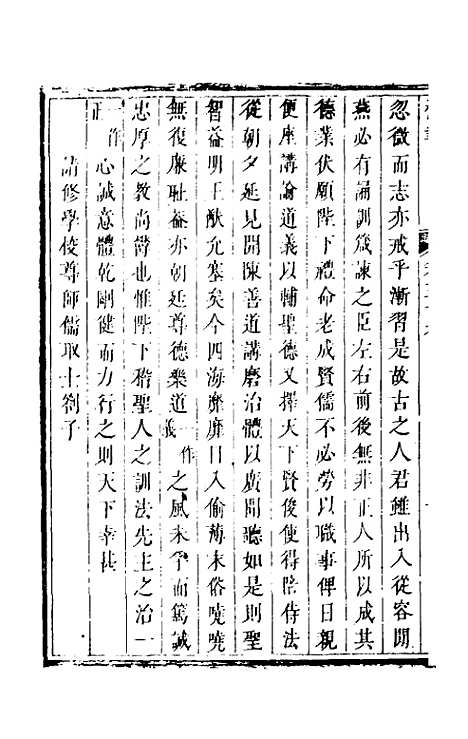 忽微而志亦戒乎漸習是故古之人君雖出入從容閒
燕必有誦訓箴諫之臣左右前後無非正人所以成其
德業伏願陛下禮命老成賢儒不必勞以職事俾日親
便座講論道義以輔聖德又擇天下賢俊使得陪侍法
從朝夕延見開陳善道講磨治體以廣聞聽如是則聖
智益明王猷允塞矣今四海靡靡日入偷薄末俗嘵嘵
無復廉耻葢亦朝廷尊德樂道一作義之風未孚而篤誠
忠厚之教尚鬱也惟陛下稽聖人之訓法先王之治一
一作正心誠意體乾剛健而力行之則天下幸甚
請修學校尊師儒取士劄子